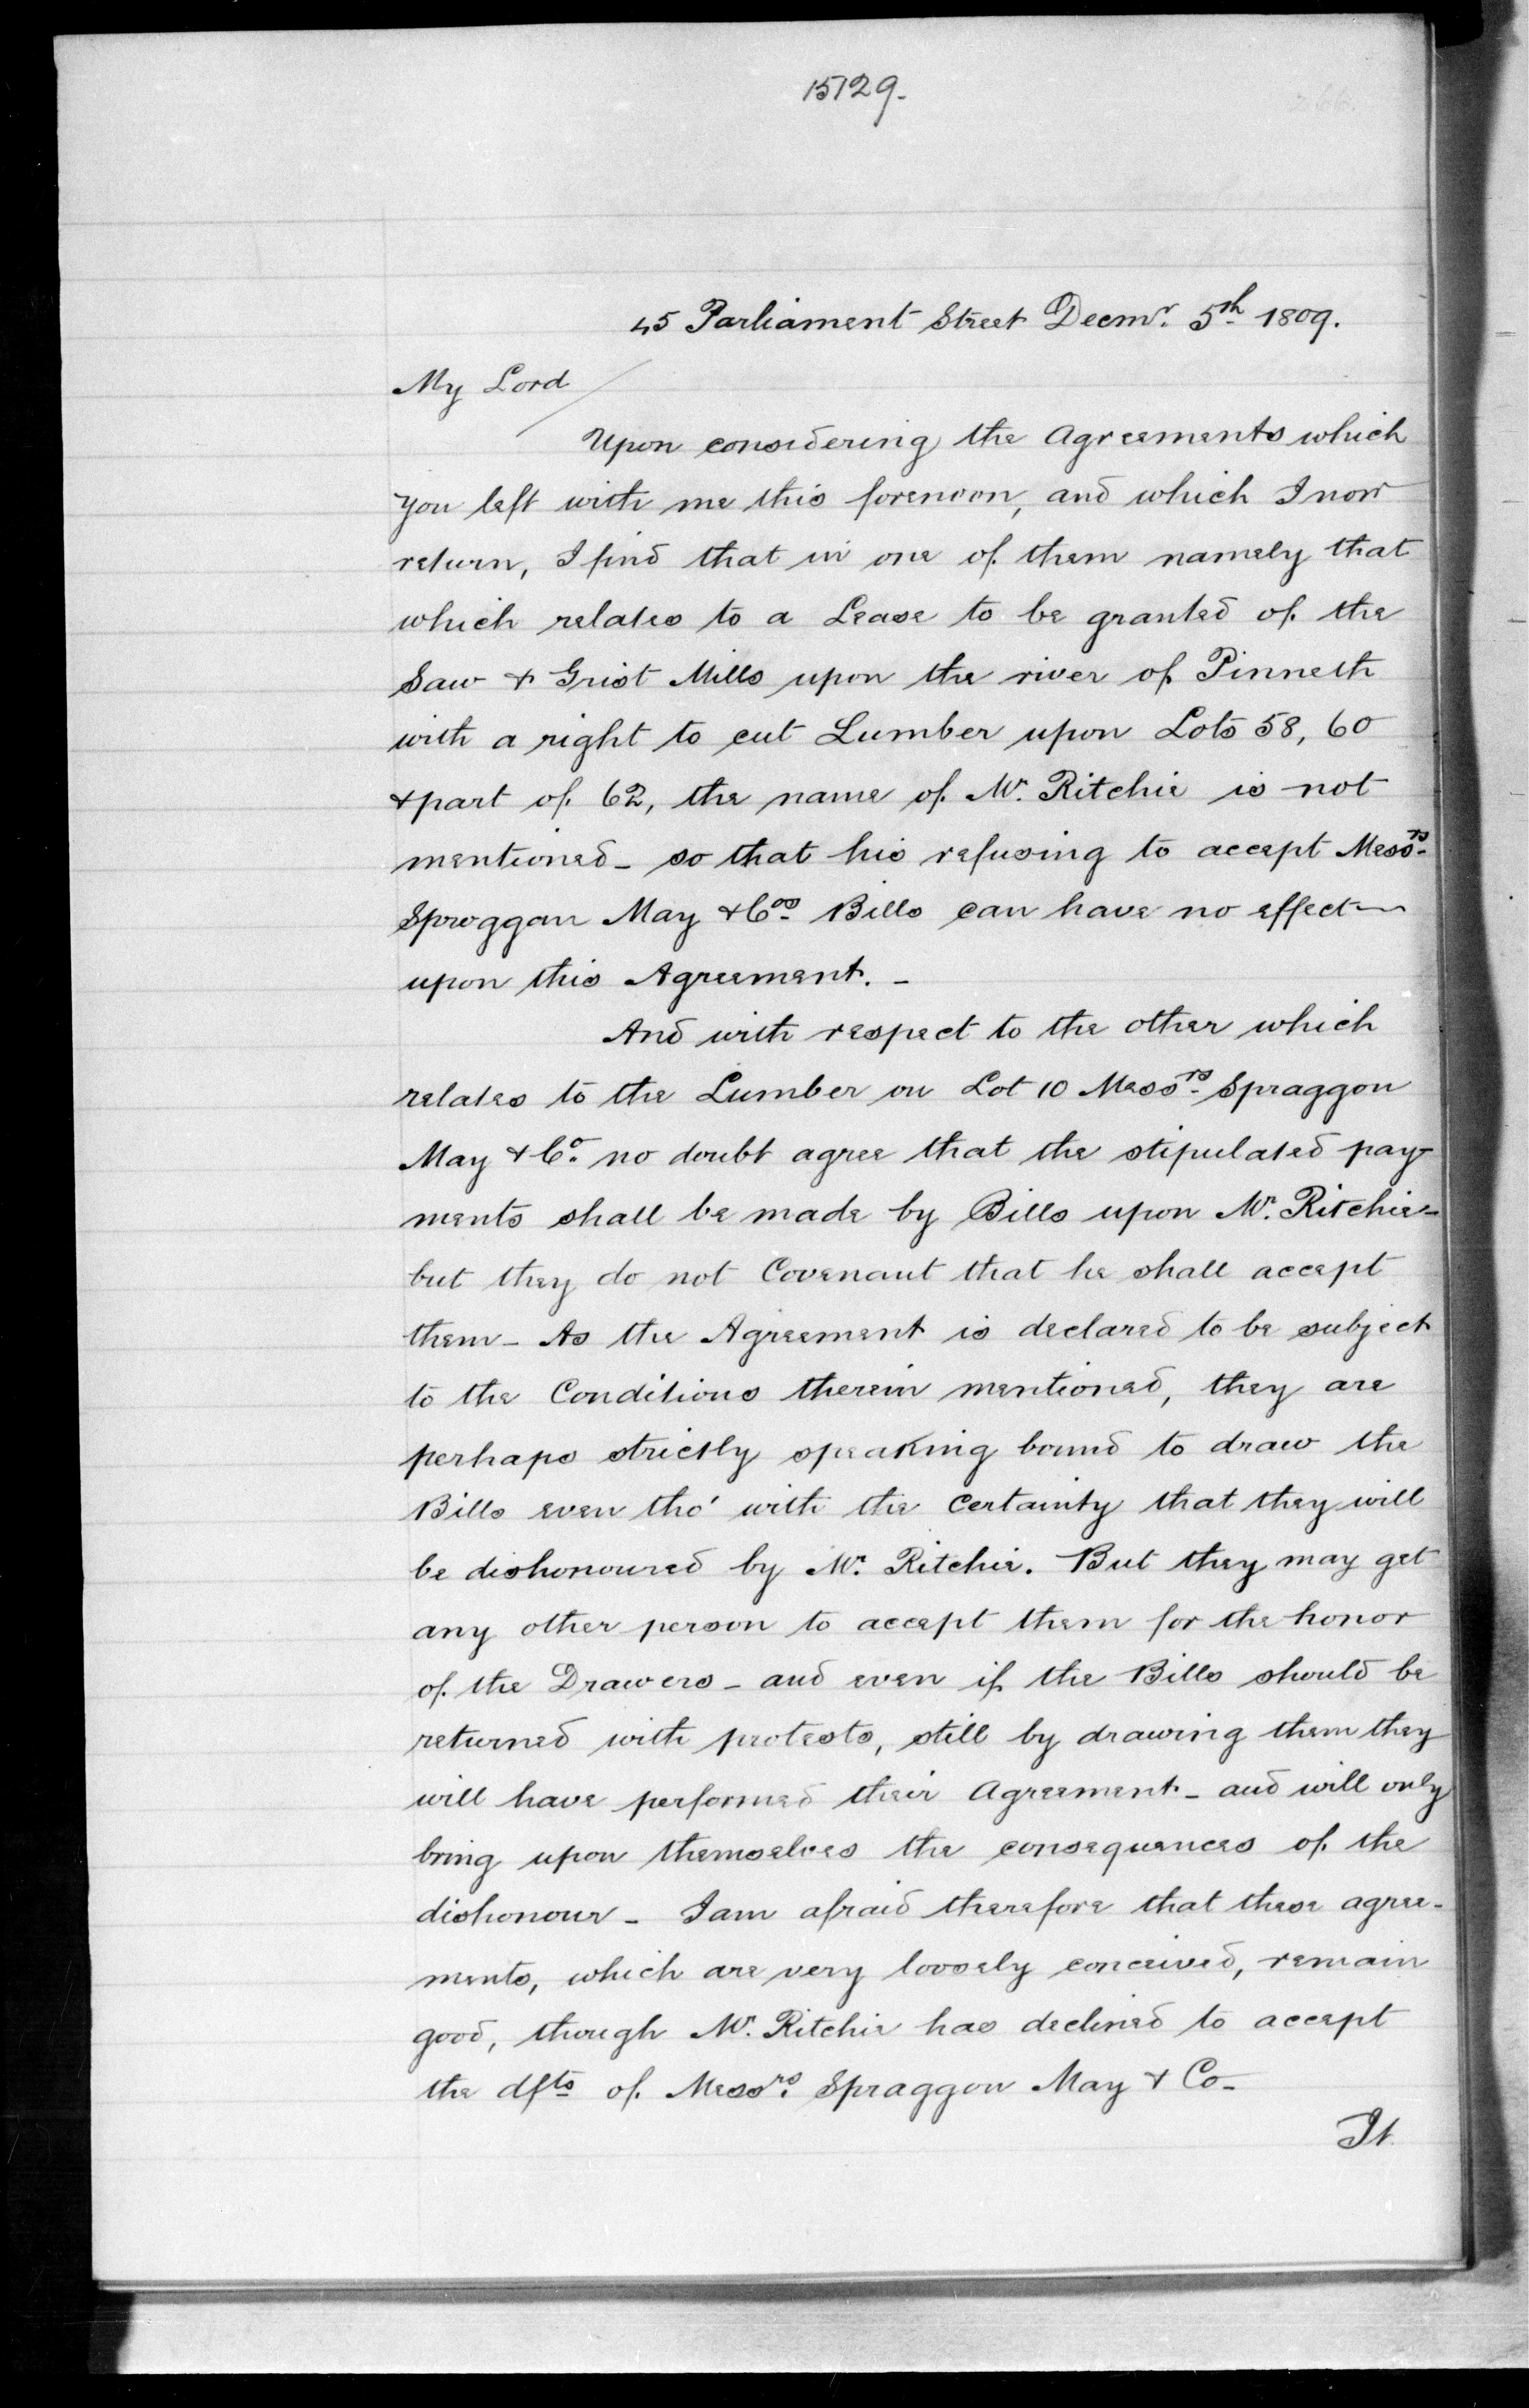 15129.
45 Parliament Street Decmr. 5th 1809.
My Lord
Upon considering the Agreements which
you left with me this forenoon, and which I now
return, I find that in one of them namely that
which relates to a Lease to be granted of the
Saw & Grist Mills upon the river of Pinneth
with a right to cut Lumber upon Lots 58, 60
& part of 62, the name of Mr. Ritchie is not
mentioned - so that his refusing to accept Messrs.
Sproggan May & Cos. Bills can have no effect
upon this Agreement. -
And with respect to the other which
relates to the Lumber on Lot 10 Messrs. Spraggon
May & Co. no doubt agree that the stipulated pay-
ments shall be made by Bills upon Mr. Ritchie -
but they do not Covenant that he shall accept
them - As the Agreement is declared to be subject
to the Conditions therein mentioned, they are
perhaps strictly speaking bound to draw the
Bills even tho' with the Certainty that they will
be dishonoured by Mr. Ritchie. But they may get
any other person to accept them for the honor
of the Drawers - and even if the Bills should be
returned with protests, still by drawing them they
will have performed their Agreement - and will only
bring upon themselves the consequences of the
dishonour - I am afraid therefore that these agree-
ments, which are very loosely conceived, remain
good, though Mr. Ritchie has declined to accept
the dfts of Messrs. Spraggon May & Co -
It